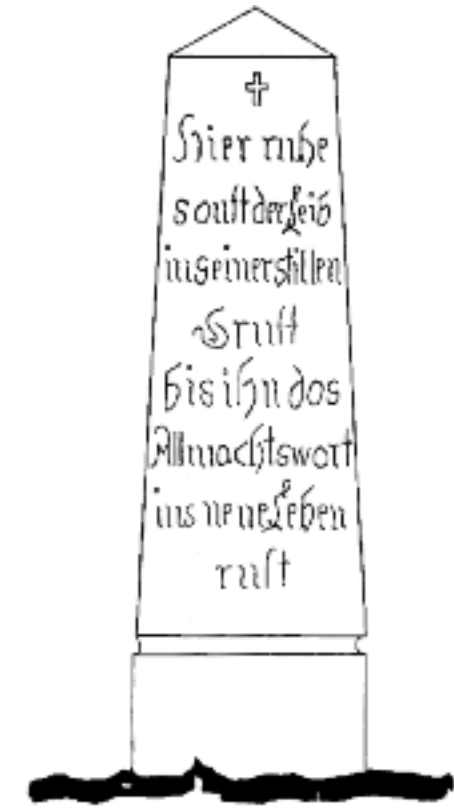 Hier ruhe
sanft der Leib
in seiner stillen
Gruft
bis ihn das
Allmachtswort
ins neue Leben
ruft